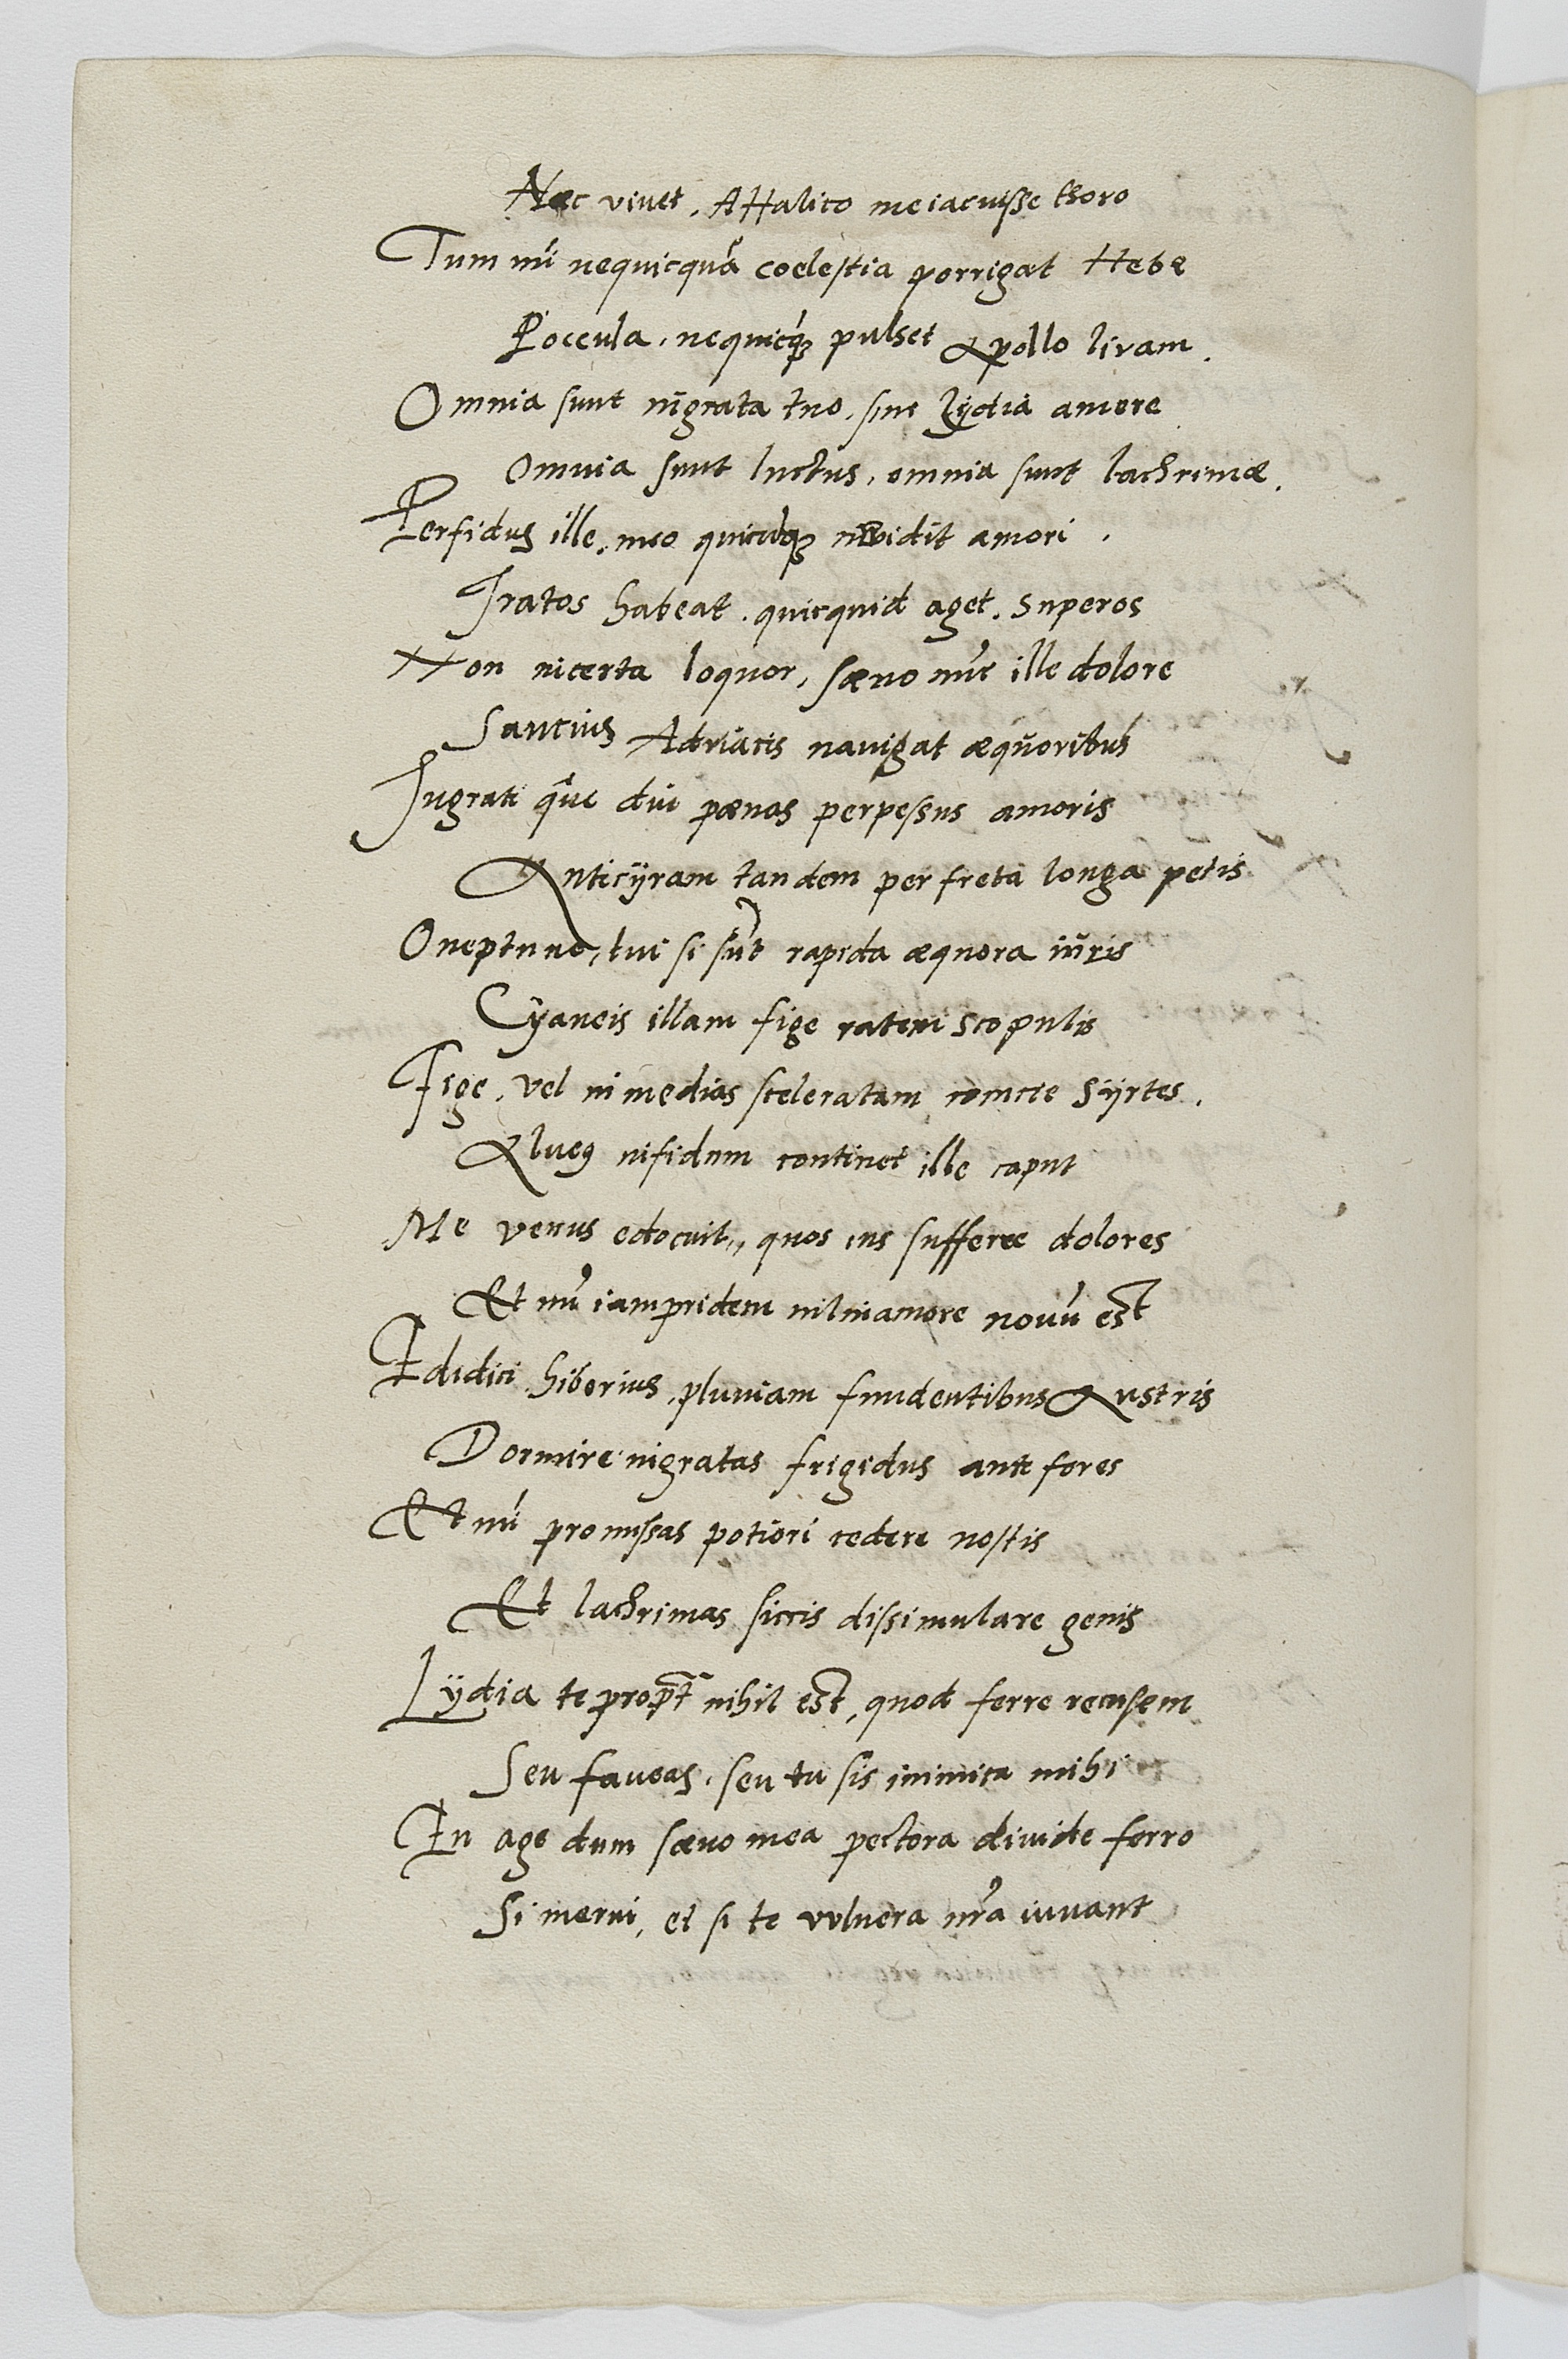 Nec vivet, Attalico me iacuisse thoro
Tum mi nequicquã coelestia porrigat Hebe
Pocula, nequicq́ꝫ pulset Apollo liram.
Omnia sunt ingrata tuo, sine Lÿdia amore
Omnia sunt luctus, omnia sunt lachrimæ.
Perfidus ille, meo quicũqꝫ invidit amori.
Iratos habeat, quicquid aget, superos
Non incerta loquor, sæuo nũc ille dolore
Saucius Adriacis nauigat æquoribus
Ingrati que diu pœnas perpessus amoris
Anticÿram tandem per freta longa petis
O neptune, tui si sũt rapida æquora iuris
Cÿaneis illam fige ratem scopulis
Fige, vel in medias sceleratam comcie Sÿrtes.
infidum continet ille caput
Me venus edocuit, quos ius sufferre dolores
Et mi iampridem nil in amore nouũ est
Edidici hibernus, pluuiam fundentibus Austris
Dormire ingratas frigidus ante fores
Et mi promissas potiori cedere noctis
Et lachrimas siccis dissimulare genis
Lÿdia te propt̃ nihil est, quod ferre recusem
Seu faueas, seu tu sis inimica mihi
En age dum sæuo mea pectora diuide ferro
Si merui, et si te vulnera nr̃a iuuant